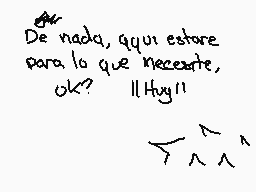 De nada, aqui estare
para lo que necesite,
ok? ||Huy||